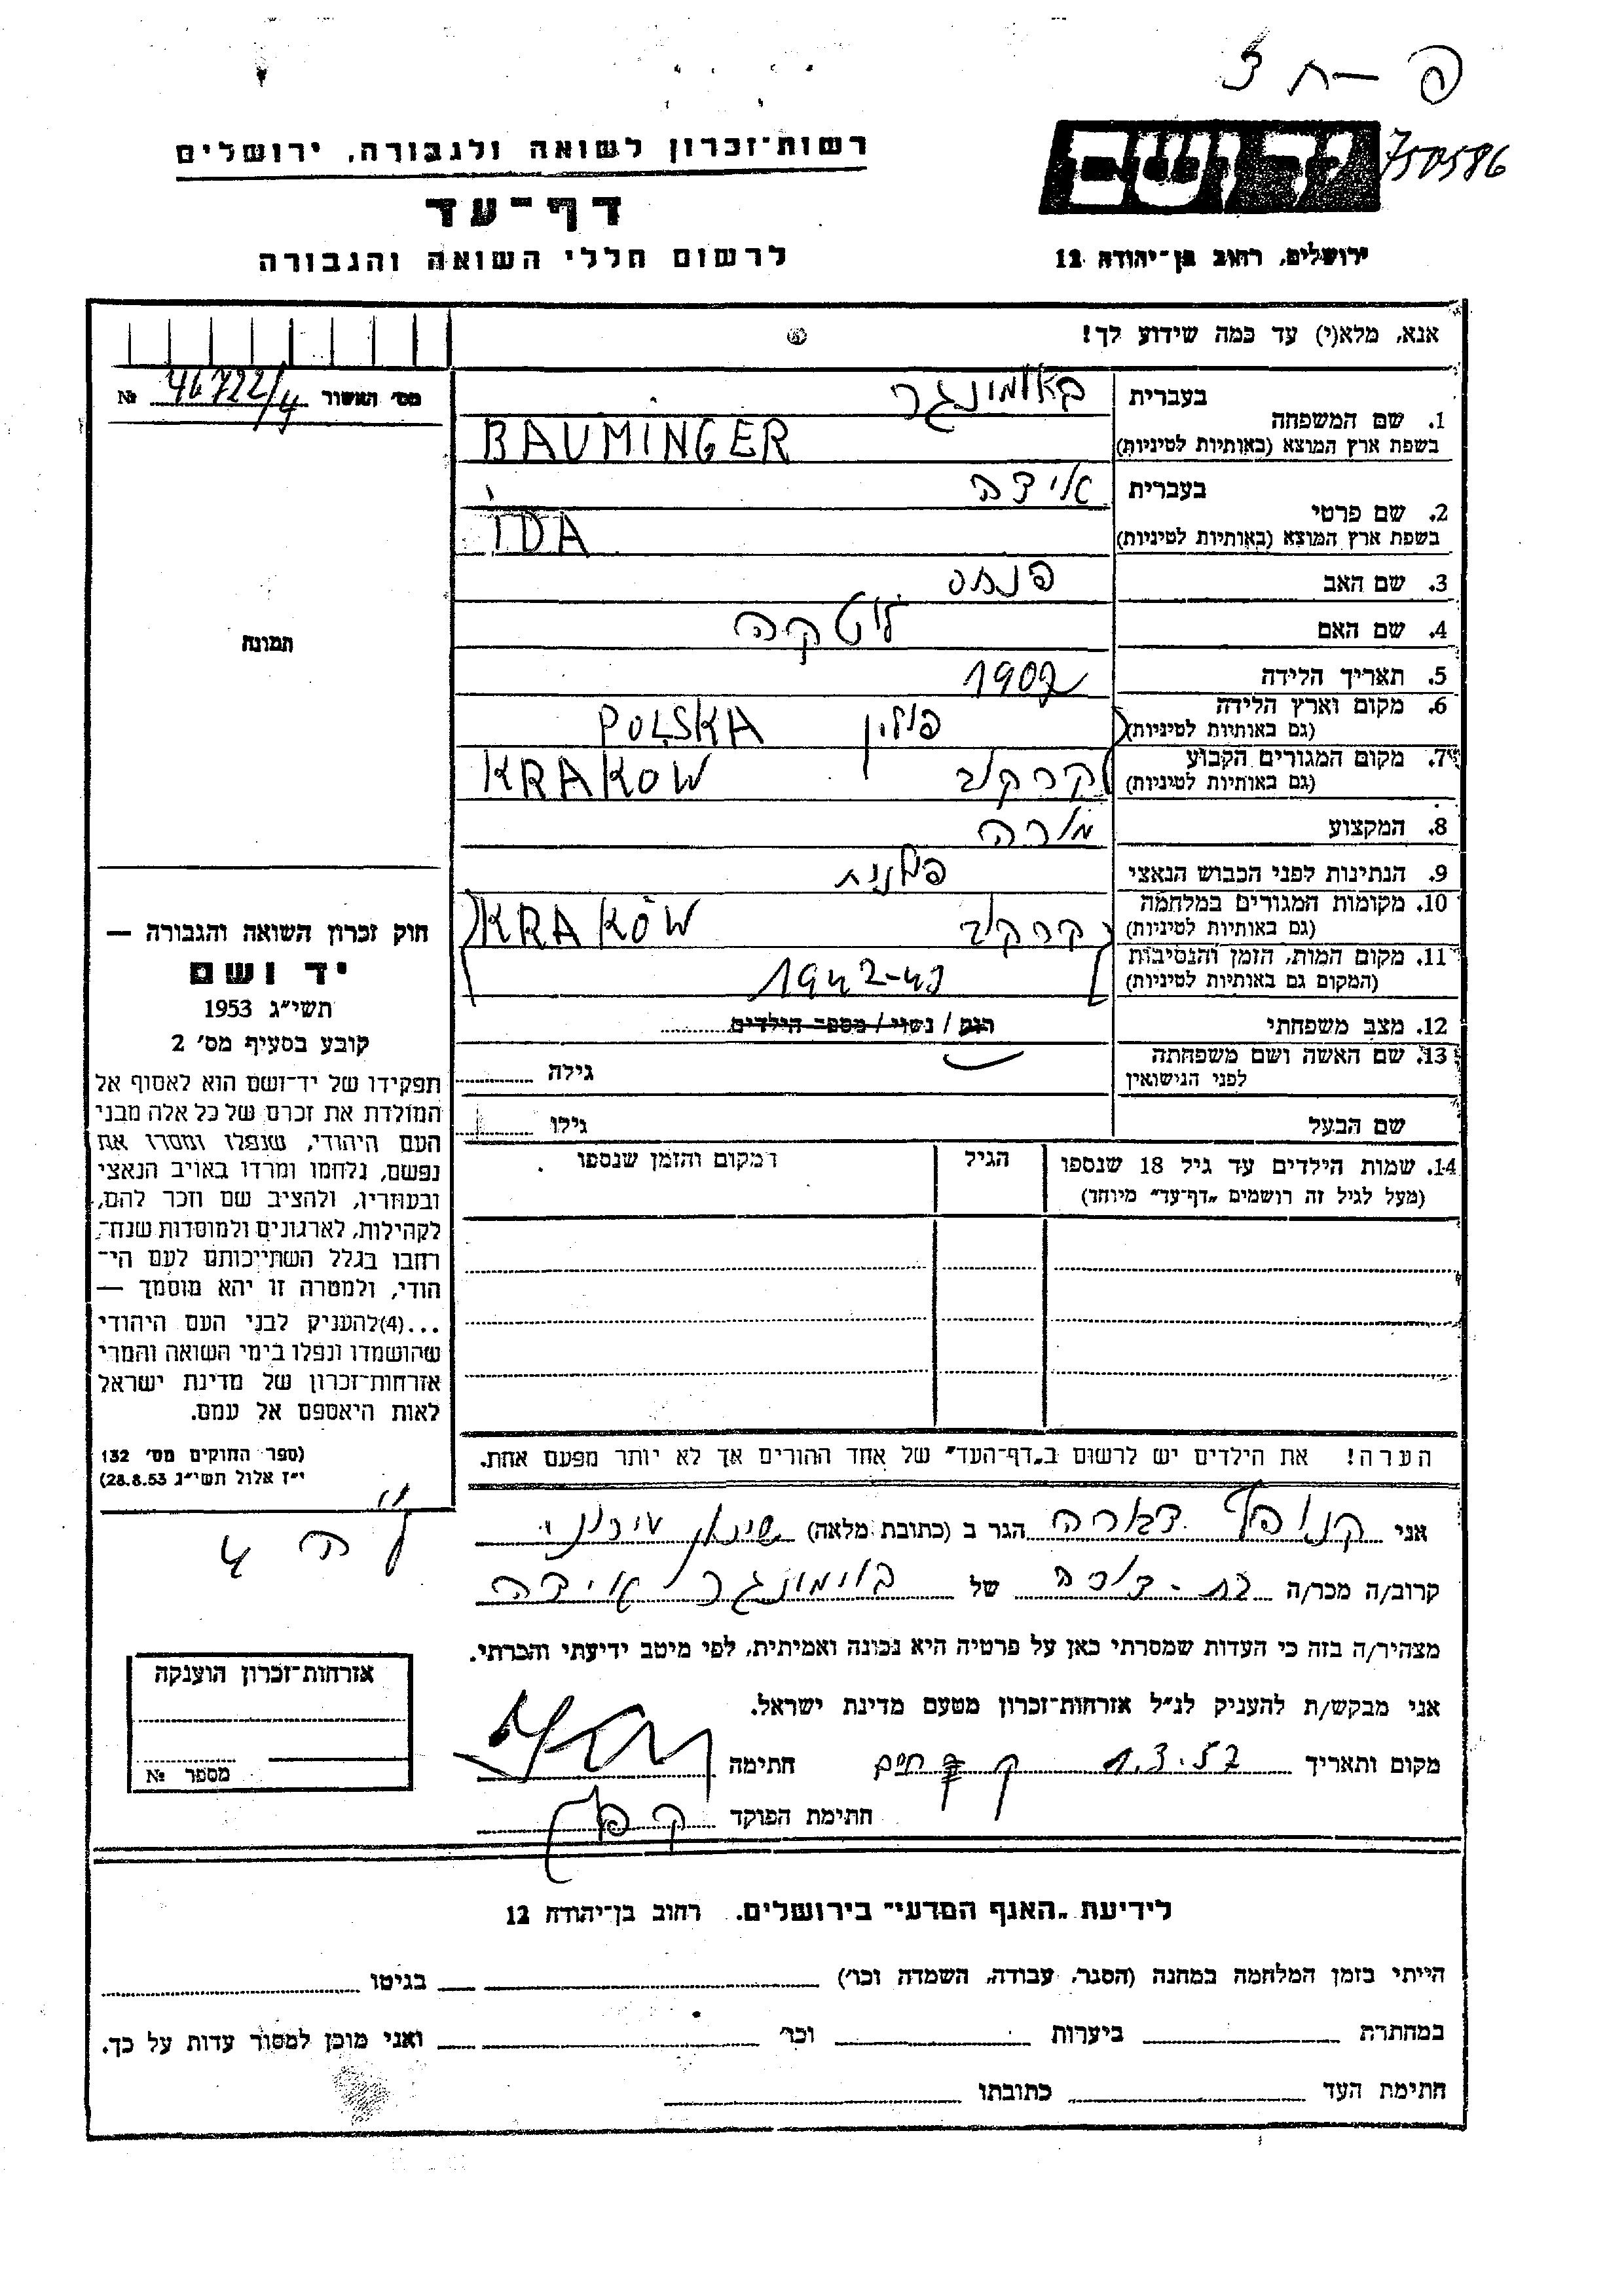 פ – ח 3
750586
יד ושם
ירושלים, רחוב בן־יהודה 12
רשות־זכרון לשואה ולגבורה, ירושלים
דף־עד
לרשום חללי השואה והגבורה
אנא, מלא(י) עד כמה שידוע לך!
מס׳ האשור 46722/4 №
תמונה
בעברית באומינגר
1. שם המשפחה
בשפת ארץ המוצא (באותיות לטיניות) BAUMINGER
בעברית אידה
2. שם פרטי
בשפת ארץ המוצא (באותיות לטיניות) IDA
3. שם האב פנחס
4. שם האם
5. תאריך הלידה 1902
6. מקום וארץ הלידה
(גם באותיות לטיניות) פולין POLSKA
7. מקום המגורים הקבוע
(גם באותיות לטיניות) קרקוב KRAKOW
8. המקצוע מורה
9. הנתינות לפני הכבוש הנאצי פולנית
10. מקומות המגורים במלחמה
(גם באותיות לטיניות) קרקוב KRAKÓW
11. מקום המות, הזמן והנסיבות
(המקום גם באותיות לטיניות) 1942-43
12. מצב משפחתי רווק / נשוי / מספר הילדים
13. שם האשה ושם משפחתה
לפני הנישואין גילה
שם הבעל גילו
14. שמות הילדים עד גיל 18 שנספו
(מעל לגיל זה רושמים „דף־עד” מיוחד)
הגיל
המקום והזמן שנספו
חוק זכרון השואה והגבורה —
יד ושם
תשי״ג 1953
קובע בסעיף מס׳ 2
תפקידו של יד־ושם הוא לאסוף אל
המולדת את זכרם של כל אלה מבני
העם היהודי, שנפלו ומסרו את
נפשם, נלחמו ומרדו באויב הנאצי
ובעוזריו, ולהציב שם וזכר להם,
לקהילות, לארגונים ולמוסדות שנח־
רחבו בגלל השתייכותם לעם הי־
הודי, ולמטרה זו יהא מוסמך —
...(4)להעניק לבני העם היהודי
שהושמדו ונפלו בימי השואה והמרי
אזרחות־זכרון של מדינת ישראל
לאות היאספם אל עמם.
(ספר החוקים מס׳ 132
י״ז אלול תשי״ג 28.8.53)
הערה! את הילדים יש לרשום ב„דף־העד” של אחד ההורים אך לא יותר מפעם אחת.
אני קנופף הגר ב (כתובת מלאה) שיכון עירוני
קרוב/ה מכר/ה בת-דודה של בוימינגר אידה
מצהיר/ה בזה כי העדות שמסרתי כאן על פרטיה היא נכונה ואמיתית, לפי מיטב ידיעתי והכרתי.
אני מבקש/ת להעניק לנ״ל אזרחות־זכרון מטעם מדינת ישראל.
מקום ותאריך 1.3.57 ק חיים חתימה
חתימת הפוקד
אזרחות־זכרון הוענקה
מספר №
לידיעת „האגף המדעי” בירושלים, רחוב בן־יהודה 12
הייתי בזמן המלחמה במחנה (הסגר, עבודה, השמדה וכו׳) בגיטו
במחתרת ביערות וכו׳ ואני מוכן למסור עדות על כך.
חתימת העד כתובתו